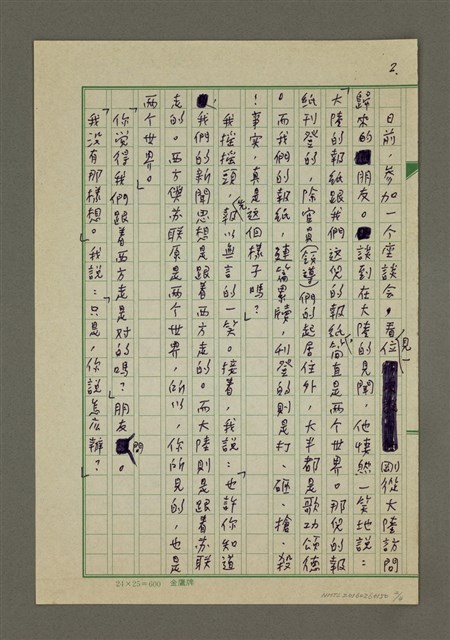 2.
日前，參加一个座談会，看見一位剛從大陸訪問
歸來的朋友。談到在大陸的見聞，他悽然一笑地說：
「大陸的報紙跟我們这兒的報紙，簡直是两个世界。那兒的報
紙刊登的，除官員（領導）們的起居住外，大半都是歌功頌德
。而我們的報紙，連篇累牘，刊登的則是打、砸、搶、殺
！事实，真是这個樣子嗎？」
我摇摇頭，先報以無言的一笑。接着，我說：「也許你知道
，我們的新聞思想是跟着西方走的。而大陸則是跟着苏联
走的。西方與苏联原是两个世界，所以，你所見的，也是
两个世界。」
「你觉得我們跟着西方走是对的嗎？」朋友問。
「我没有那樣想。」我說：「只是，你說怎広辦？」
24×25=600 金鷹牌